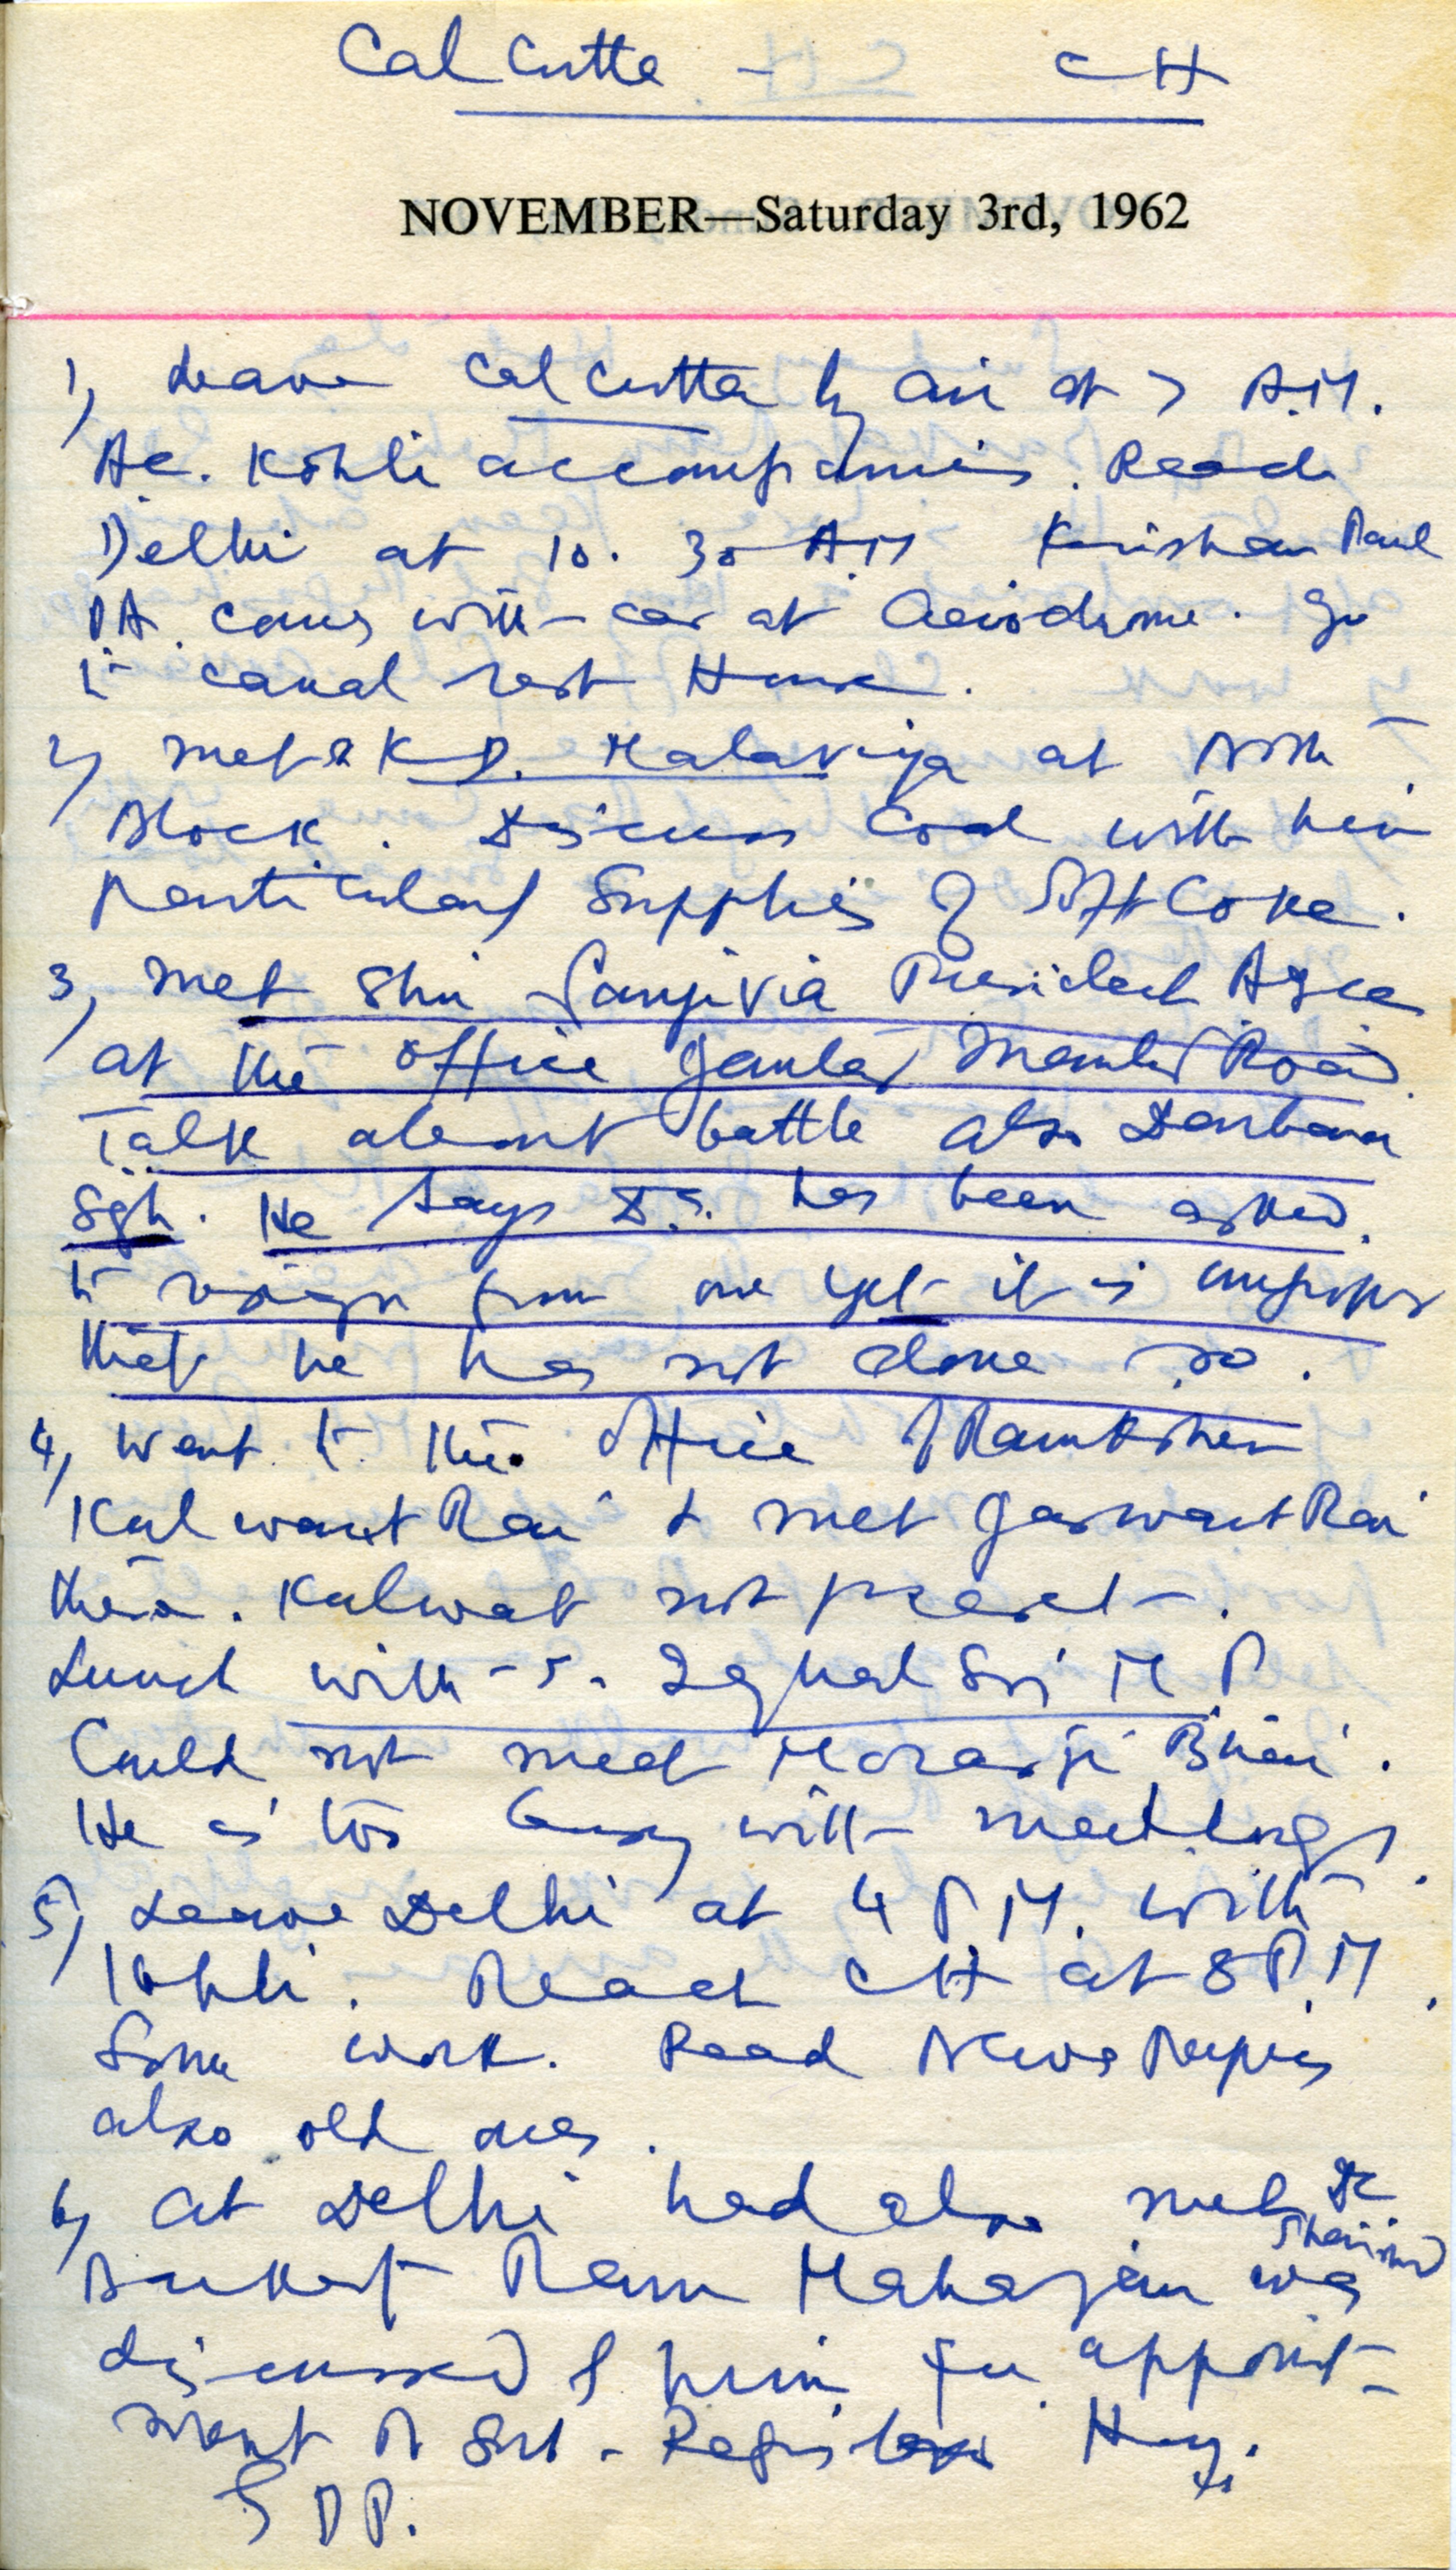 Calcutta - CH
NOVEMBER—Saturday 3rd, 1962
1, Leave Calcutta by air at 7 A.M.
Kohli accompanies. Reach
Delhi at 10.30 AM Krishan Paul
PA. comes with car at Aerodrome. Go
to canal rest House.
2, met K D. Malaviya at North
Block. Discuss Coal with him
particularly Supplies of Soft Coke.
3, met Shri Sanjivia President
at the office Jantar Mantar Road
Talk about battle also Darbara
Sgh. He says D.S. has been asked
to resign from one yet it is improper
that he has not done so.
4, went to the office of RamKishan
Kulwant Rai & met Jaswant Rai
there. Kulwat not present.
Lunch with S. Iqbal Sgh M P
Could not meet Morarji Bhai.
He is too busy with meetings.
5, Leave Delhi at 4 P M. with
Kohli. Reach CH at 8 P.M.
Some work. Read News Papers
also old ones.
6, at Delhi had also met
Ram Mahajan was
discussed for appoint-
ment of Sub-Registrar